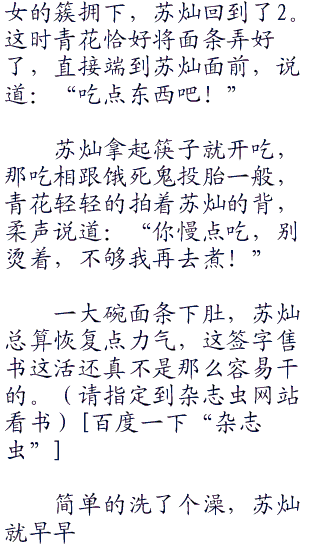 女的簇拥下，苏灿回到了2。
这时青花恰好将面条弄好
了，直接端到苏灿面前，说
道：“吃点东西吧！”
苏灿拿起筷子就开吃，
那吃相跟饿死鬼投胎一般，
青花轻轻的拍着苏灿的背，
柔声说道：“你慢点吃，别
烫着，不够我再去煮！”
一大碗面条下肚，苏灿
总算恢复点力气，这签字售
书这活还真不是那么容易干
的。（请指定到杂志虫网站
看书）[百度一下“杂志
虫”]
简单的洗了个澡，苏灿
就早早